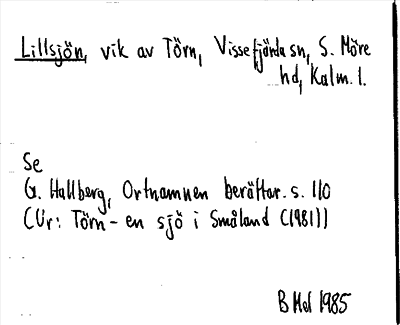 Lillsjön, vik av Törn, Vissefjärda sn, S. Möre
hd, Kalm. l.
Se
G. Hallberg, Ortnamnen berättar. s. 110
(Ur: Törn - en sjö i Småland (1981))
B Mel 1985